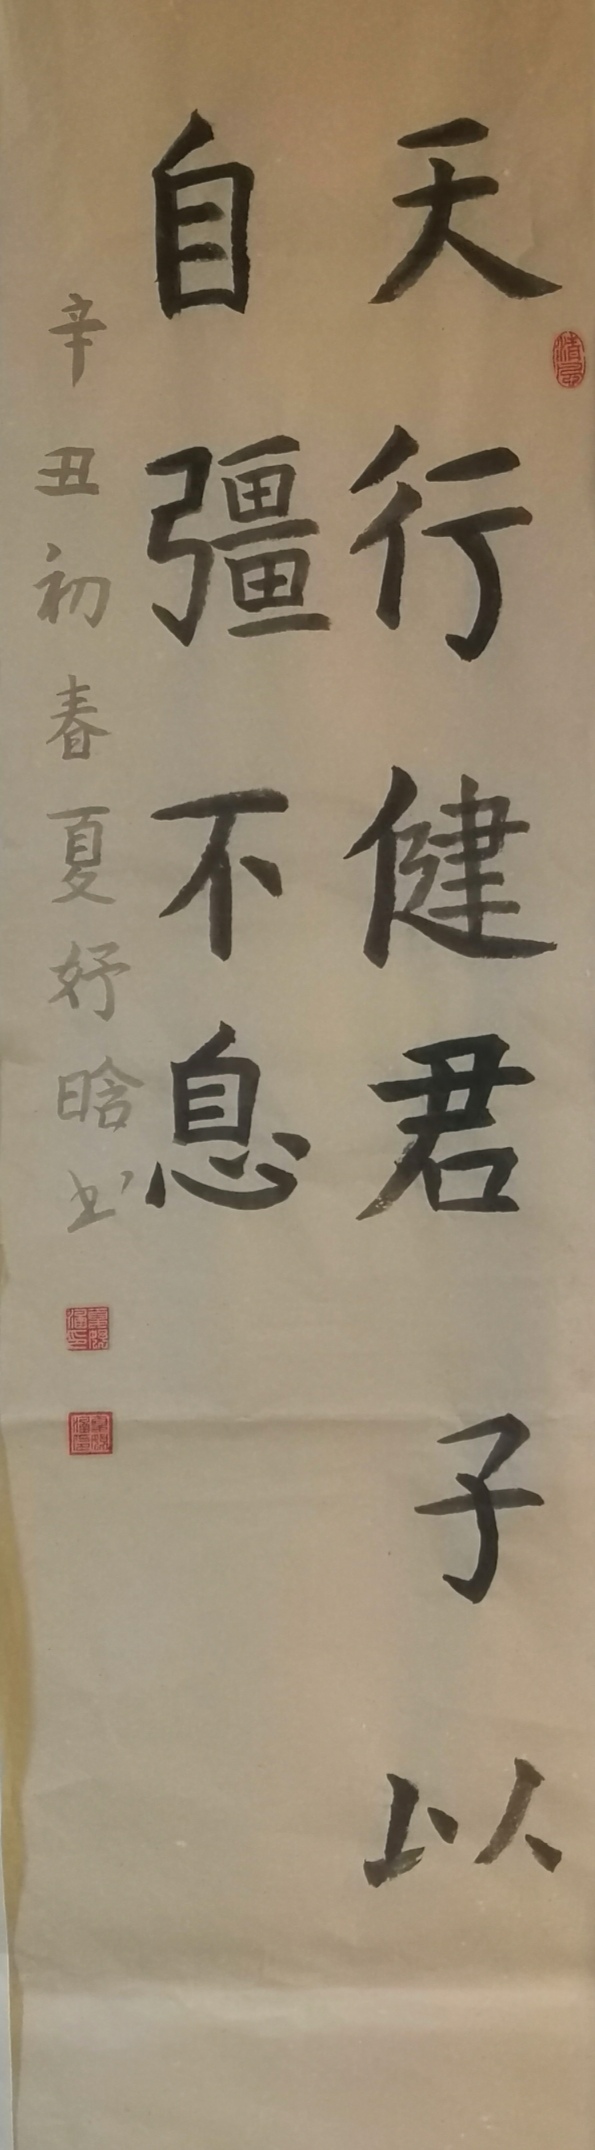 天行健君子以
自彊不息
辛丑初春夏妤晗书